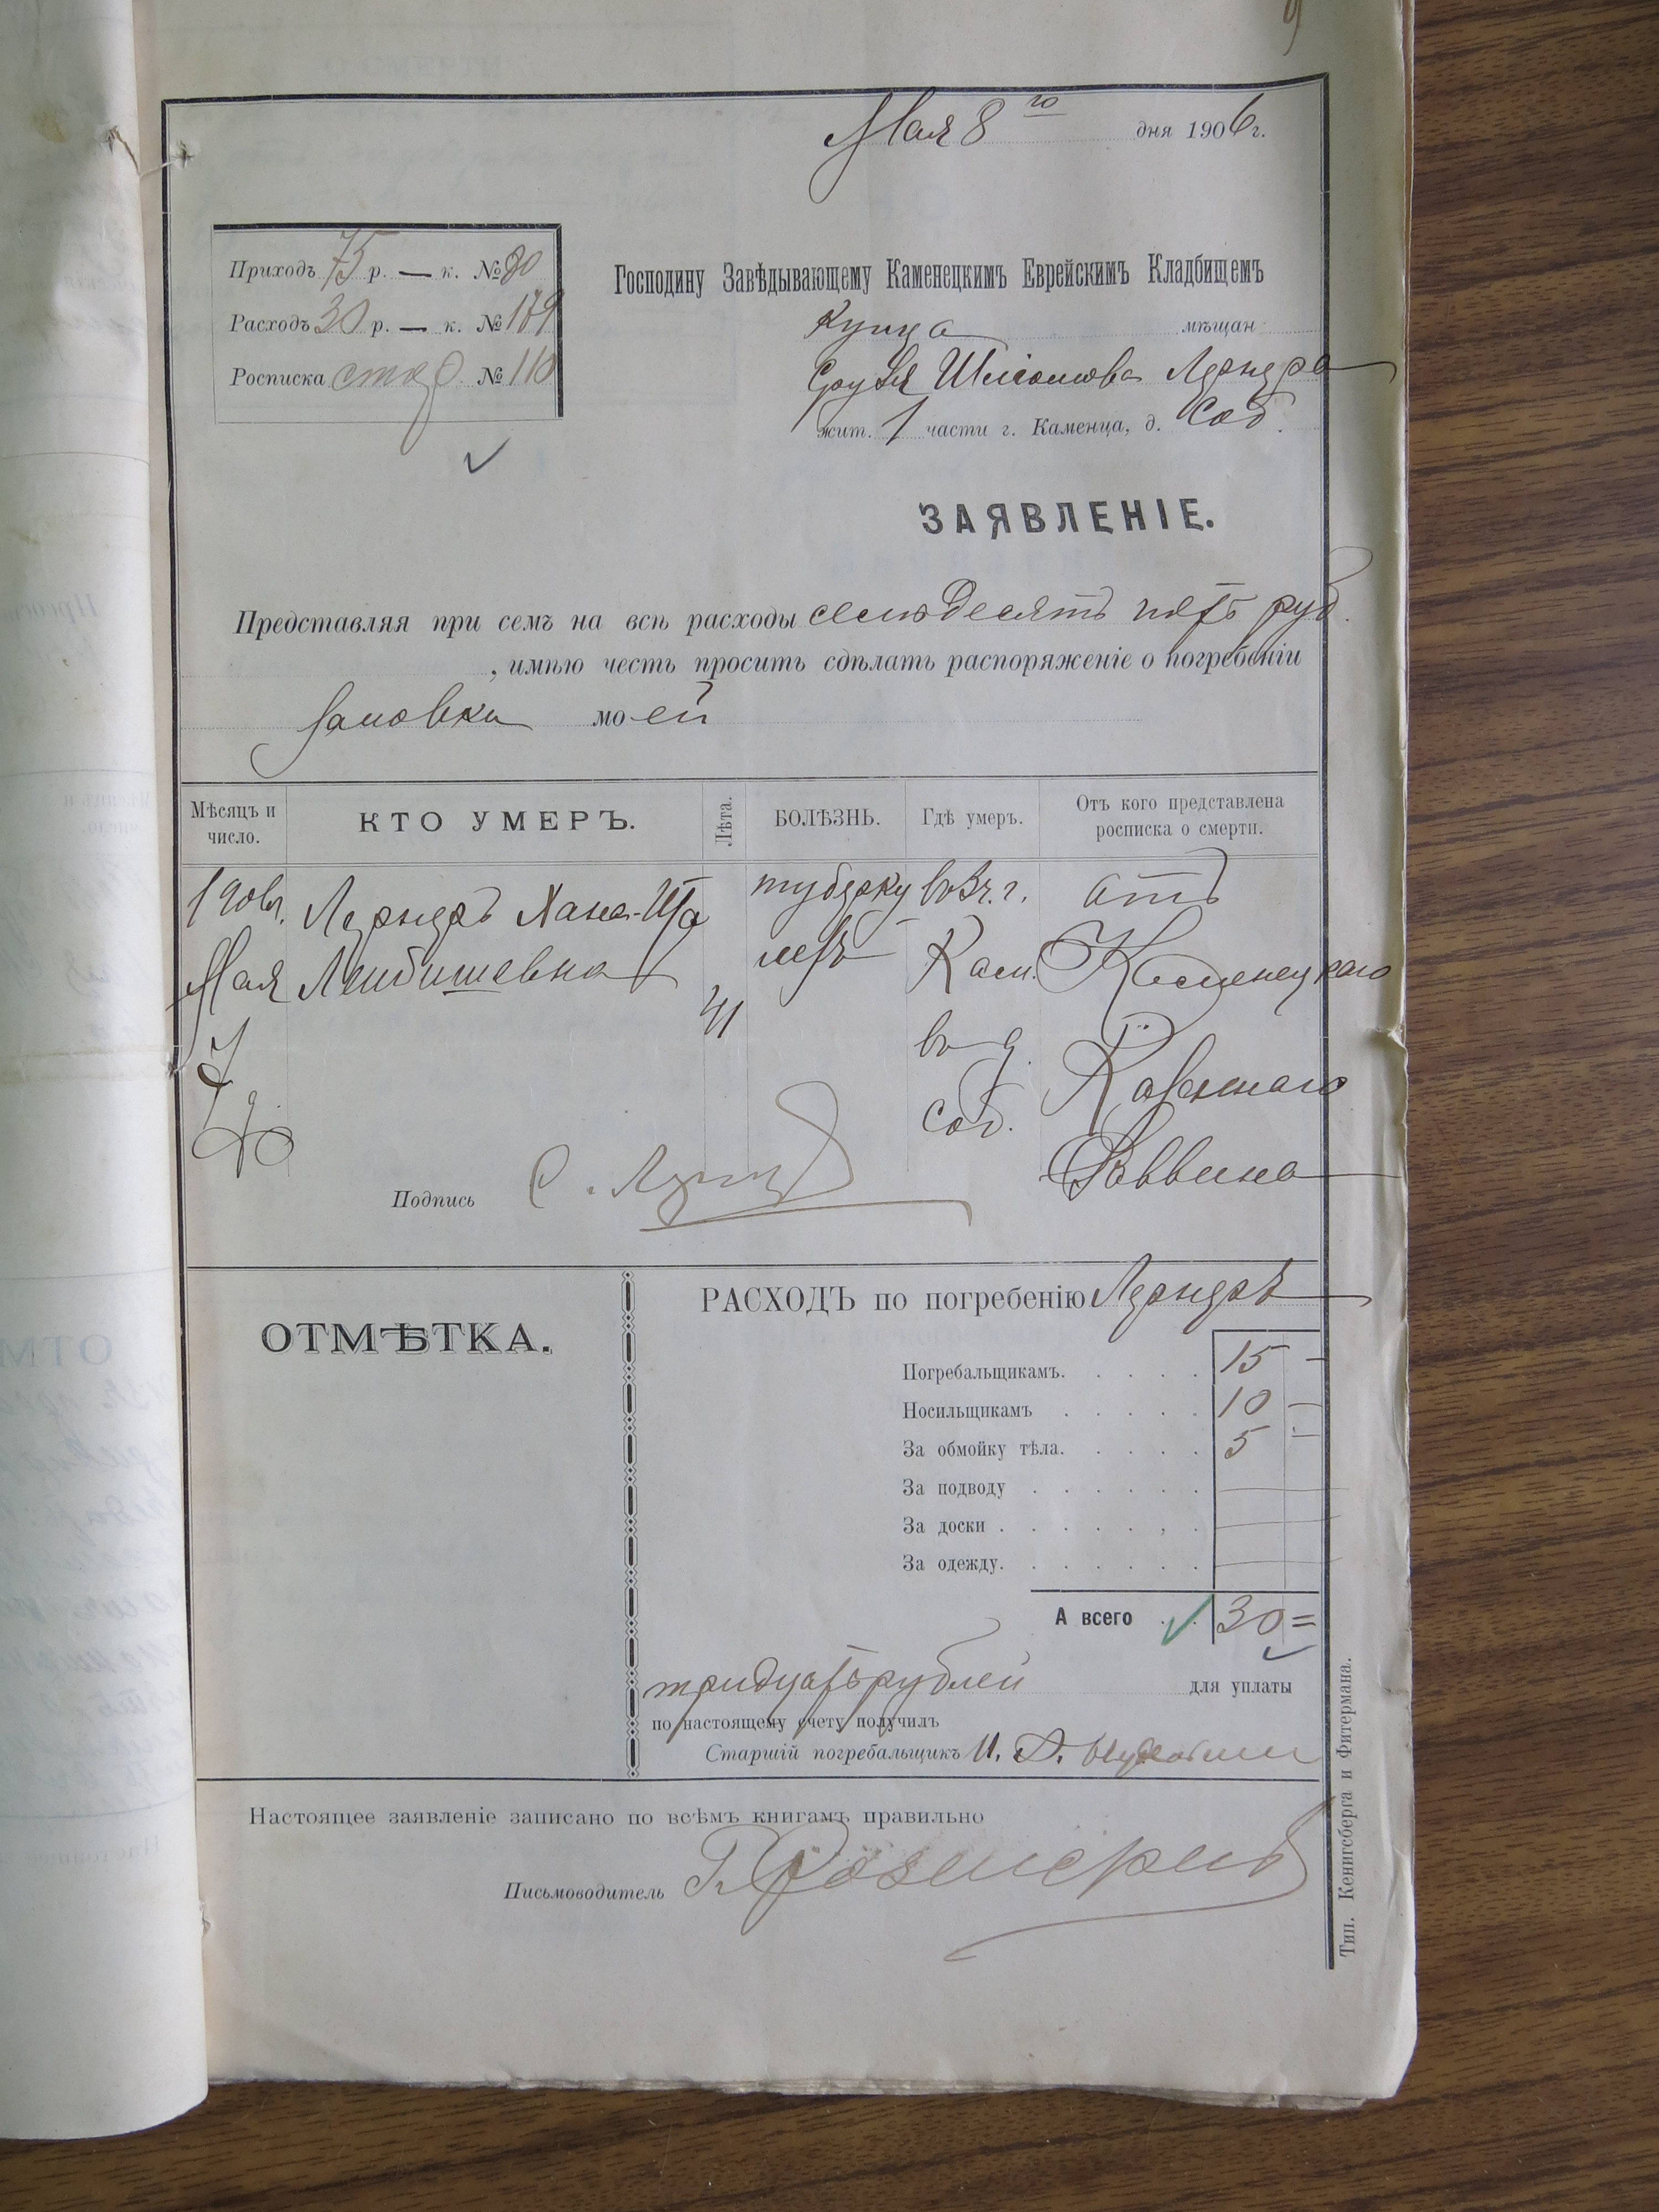 Мая 8го дня 1906 г.
Приходъ 75 р. — к. № 90
Господину Завѣдывающему Каменецкимъ Еврейскимъ Кладбищемъ
Расходъ 30 р. — к. № 179
Купца мѣщан
Росписка № 110
Сруля Шлiомова Лернера
жит. 1 части г. Каменца, д. Соб.
ЗАЯВЛЕНІЕ.
Представляя при семъ на всѣ расходы семьдесятъ пять руб.
, имѣю честь просить сдѣлать распоряженіе о погребеніи
моей
Мѣсяцъ и число.
КТО УМЕРЪ.
Лѣта.
БОЛѢЗНЬ.
Гдѣ умеръ.
Отъ кого представлена росписка о смерти.
1906г. Лернеръ Хана- туберку во 2 ч. г. отъ
Мая Лейбишевна лезъ Кам. Каменецкаго
7 41 во д. Казеннаго
соб. Раввина
Подпись С. Лернеръ
РАСХОДЪ по погребенію Лернеръ
ОТМѢТКА.
Погребальщикамъ. . . . . 15 –
Носильщикамъ . . . . . 10 –
За обмойку тѣла. . . . . 5 –
За подводу . . . . . .
За доски . . . . . . .
За одежду. . . . . . .
А всего . . 30 =
тридцать рублей для уплаты
по настоящему счету получилъ
Старшій погребальщикъ И.
Настоящее заявленіе записано по всѣмъ книгамъ правильно
Письмоводитель Г.
Тип. Кенигсберга и Фитермана.